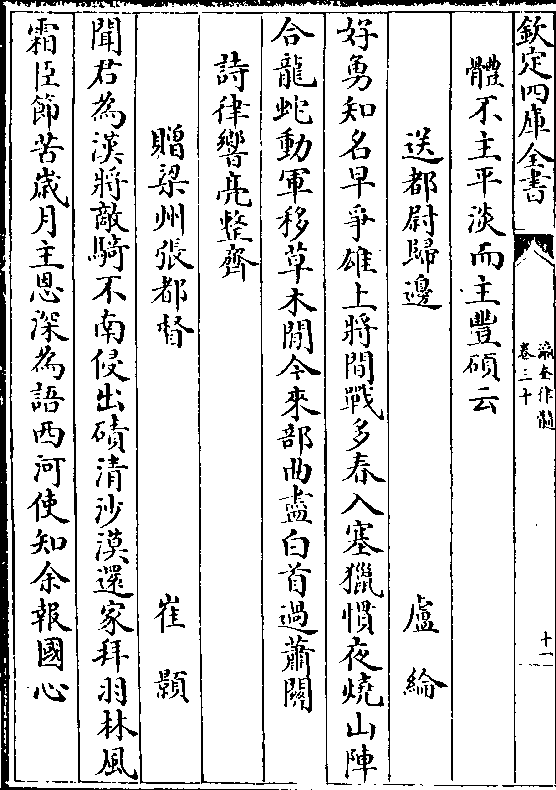 欽定四庫全書
瀛奎律髓
卷三十
十一
體不主平淡而主豐碩云
送都尉歸邊 盧綸
好勇知名早爭雄上將間戰多春入塞獵慣夜燒山陣
合龍蛇動軍移草木閒今來部曲盡白首過蕭關
詩律響亮整齊
贈梁州張都督 崔顥
聞君為漢將敵騎不南侵出磧清沙漠還家拜羽林風
霜臣節苦歲月主恩深為語西河使知余報國心